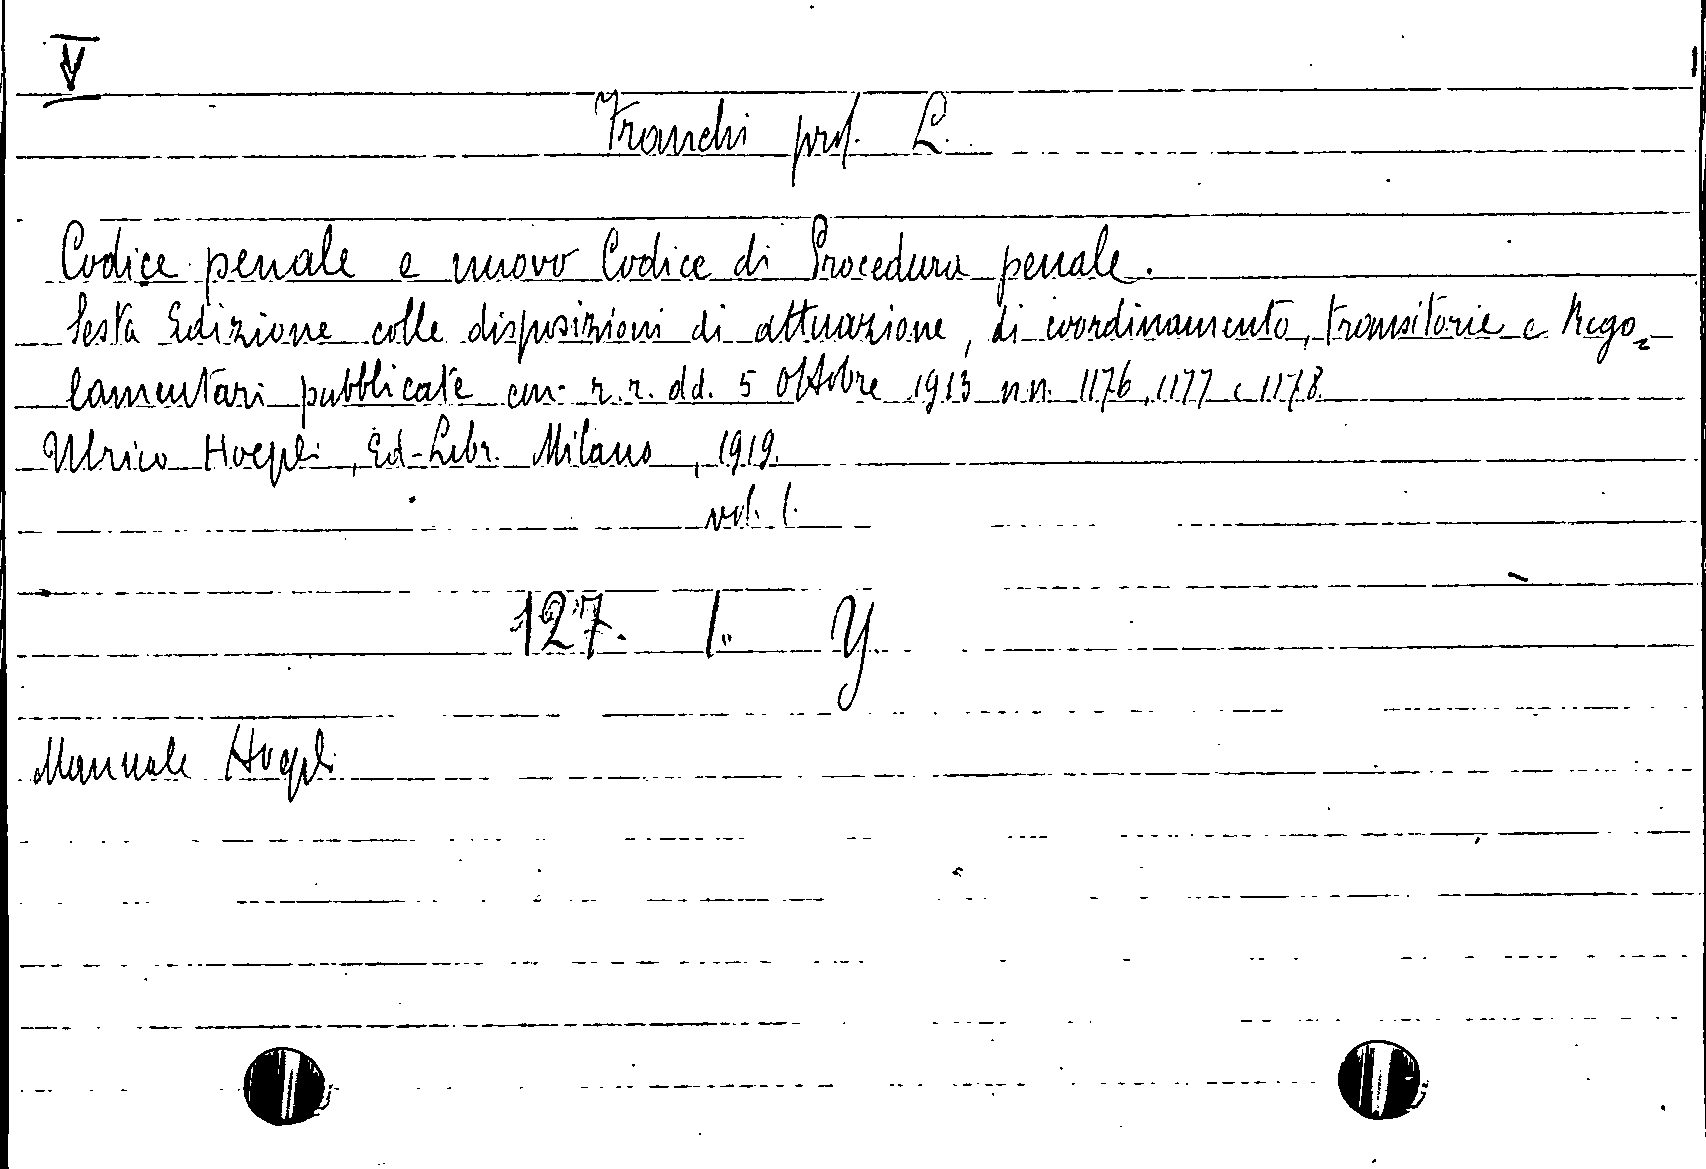 V
Franchi prof. L.
Codice penale e nuovo Codice di Procedura penale.
Sesta Edizione colle disposizioni di attuazione, di coordinamento, transitorie e Rego-
lamentari pubblicate con r.r. dd. 5 Ottobre 1913 nn. 1176, 1177 e 1178.
Ulrico Hoepli, Ed-Libr. Milano, 1919.
vol. 1.
127. I. Y
Manuale Hoepli